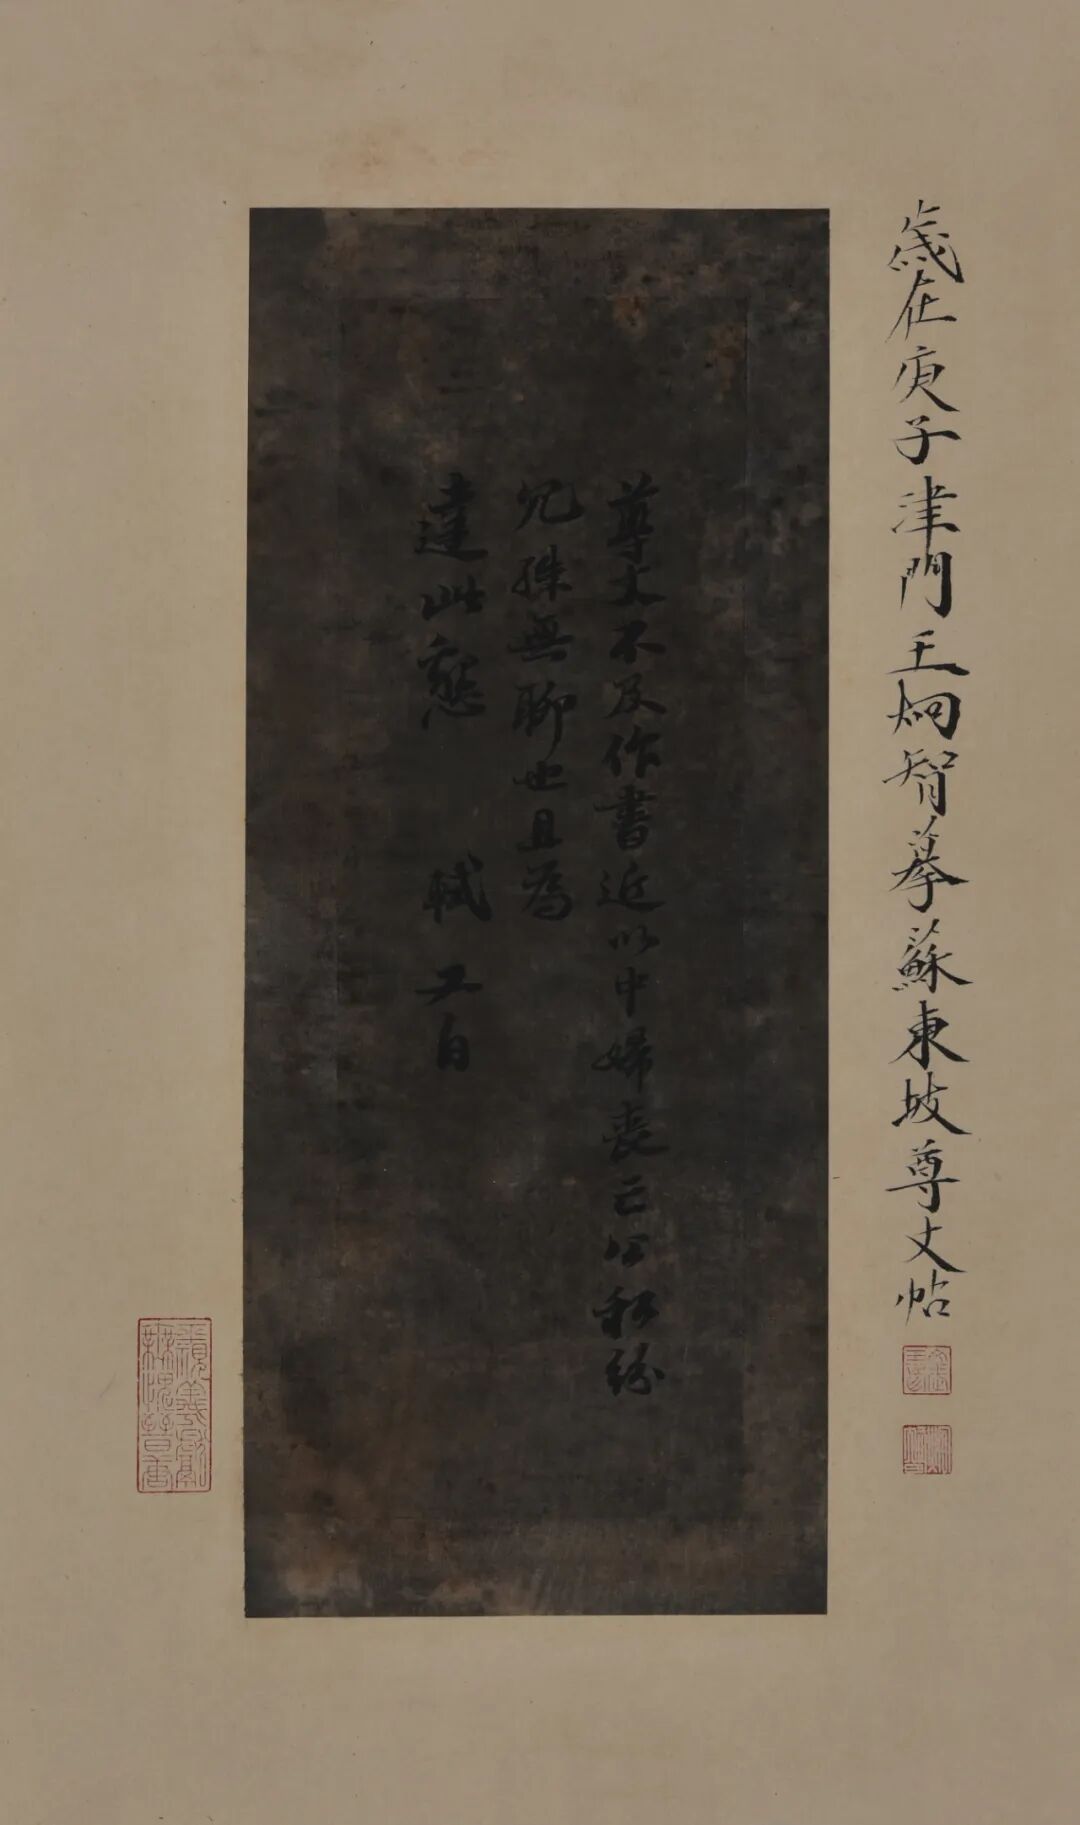 歲在庚子津門王炯智摹蘇東坡尊丈帖
尊丈不及作書近以中婦喪亡公私紛
冗殊無聊也且為
達此懇 軾又白